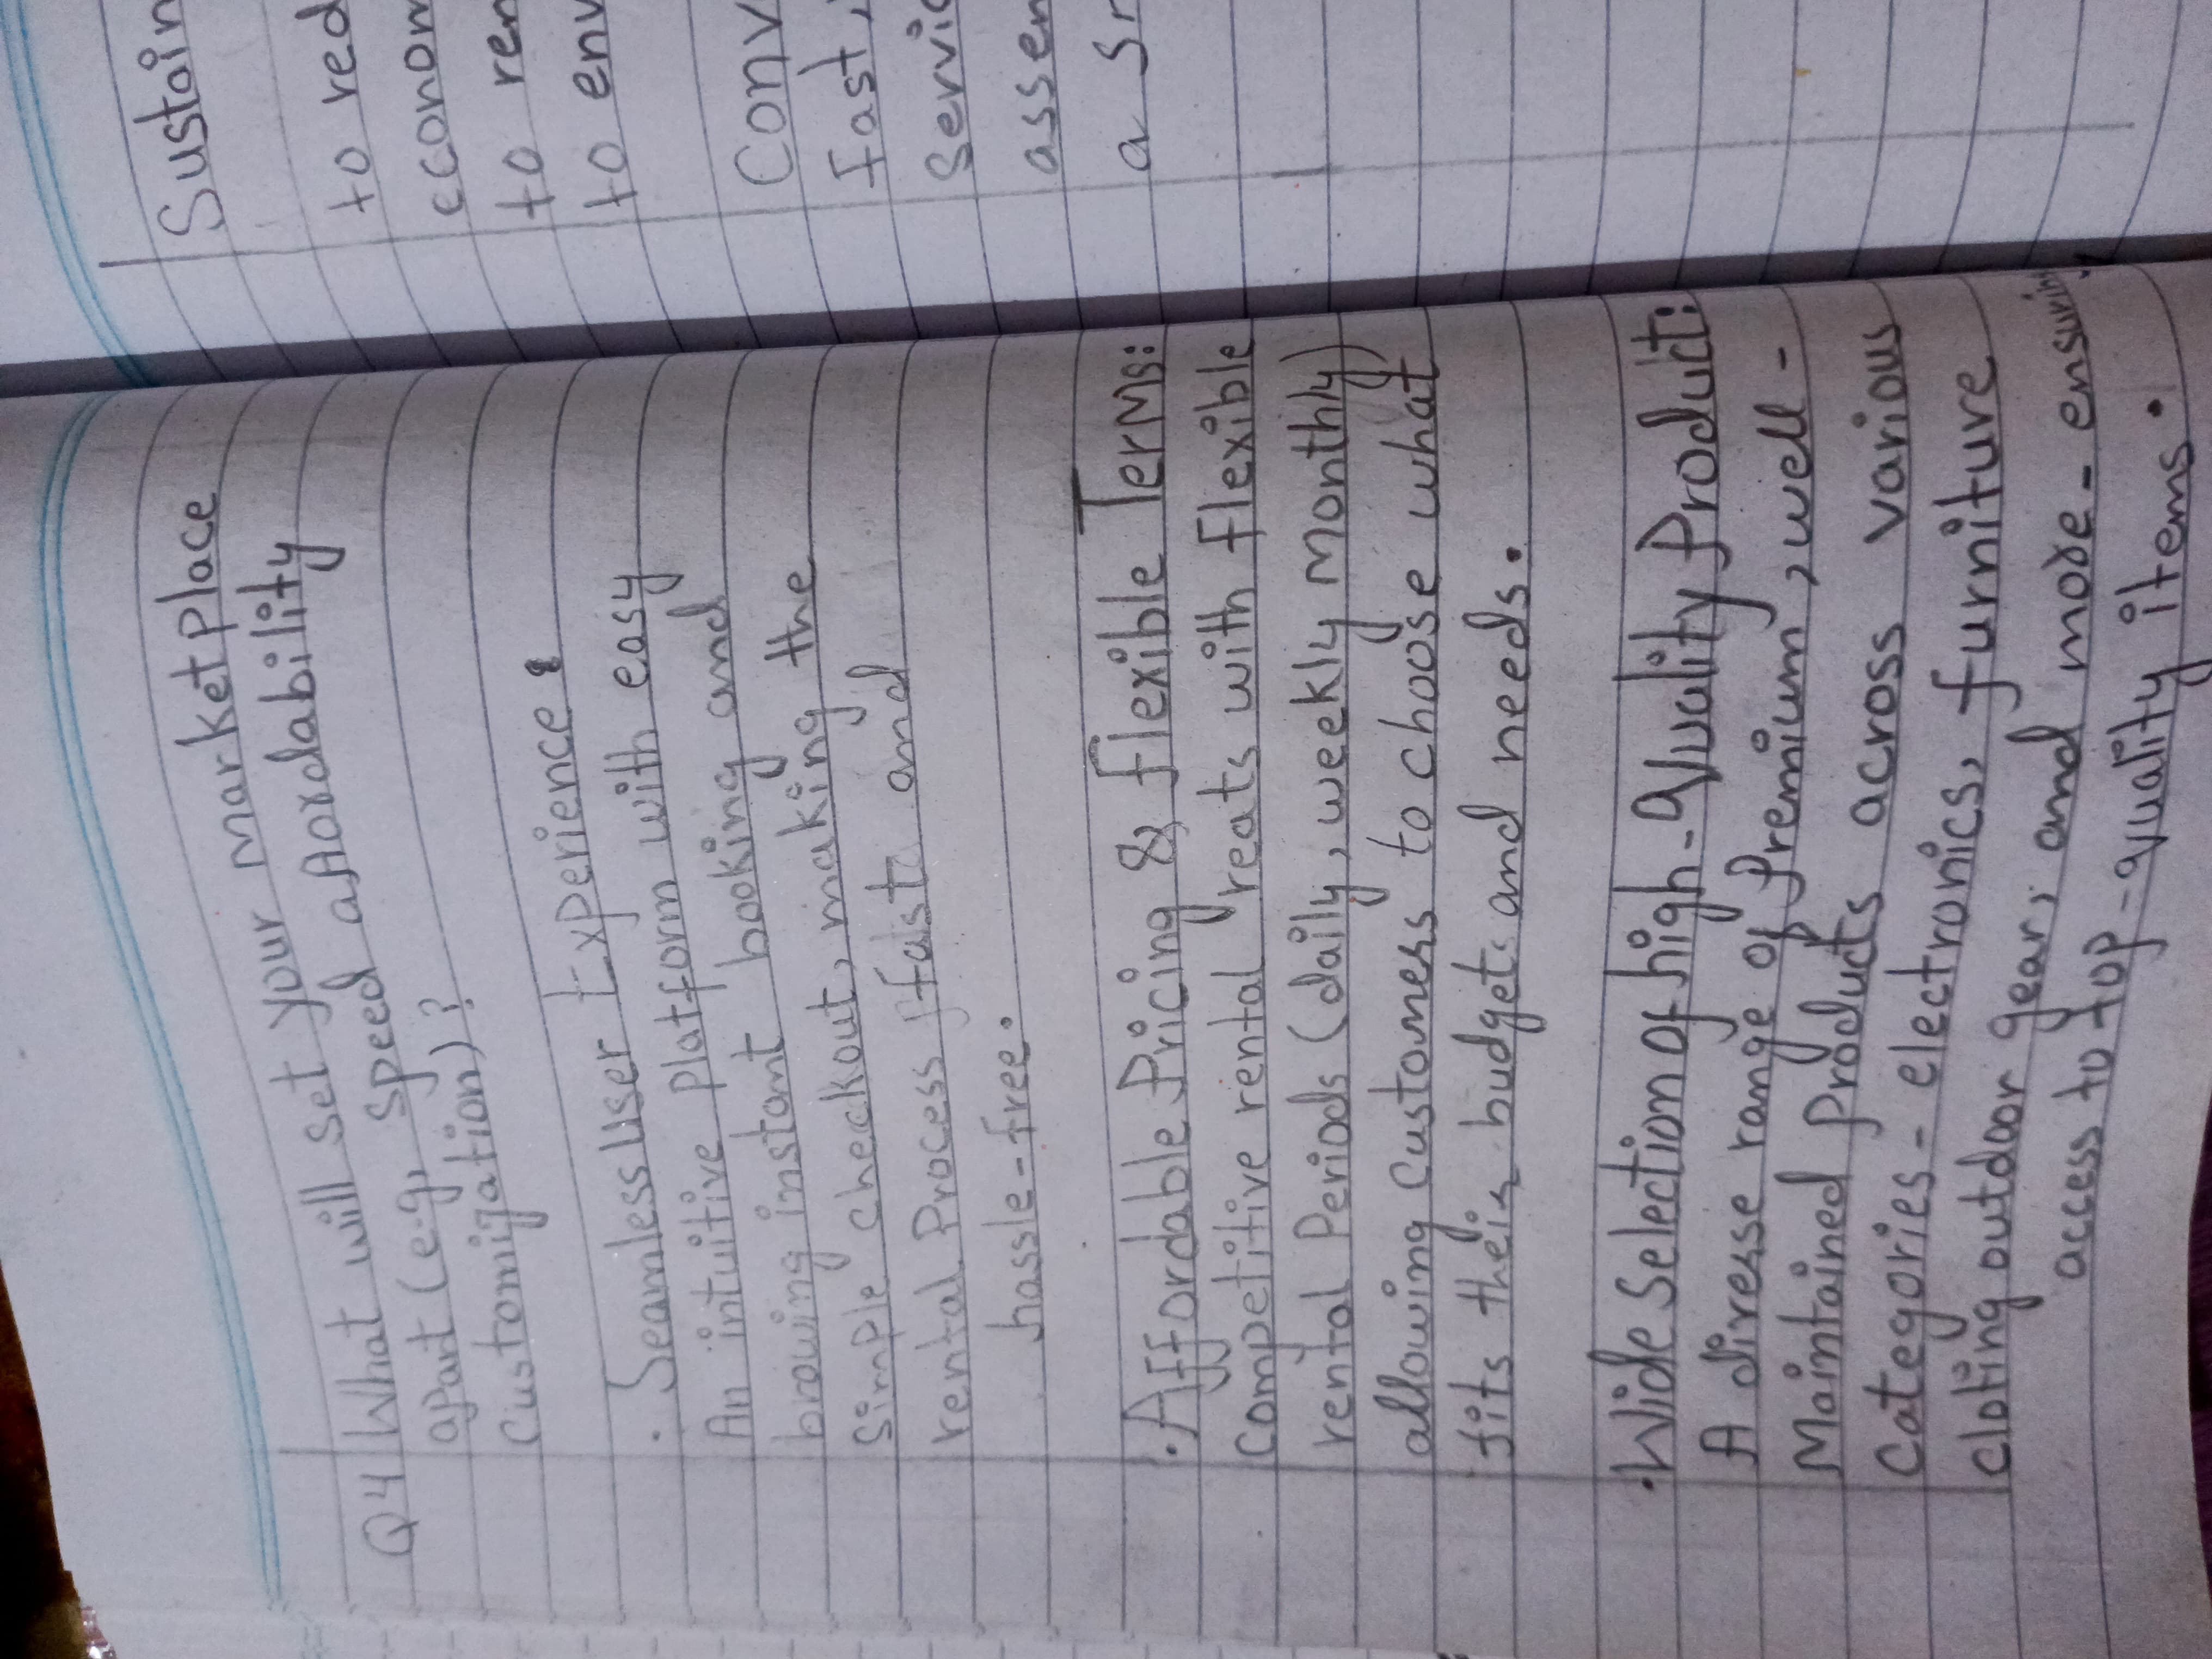 Q4 What will set your marketplace
apart (e.g, speed affordability
Customization)?
. Seamless User Experience:
An intuitive platform with easy
browing instant booking and
Simple checkout, making the
rental Process fast and
hassle-free.
. Affordable Pricing & flexible Terms:
Competitive rental reats with flexible
rental Periods (daily, weekly monthly)
allowing customess to choose what
fits their budgets and needs.
. Wide Selection of high-Quality Product:
A diverse range of Premium, well-
Maintained products across various
Categories - electronics, furniture
cloting outdoor gear, and more - ensuring
access to top-quality items.
Sustain
to red
econom
to ren
to env
Conv
fast,
Servic
assen
a sr